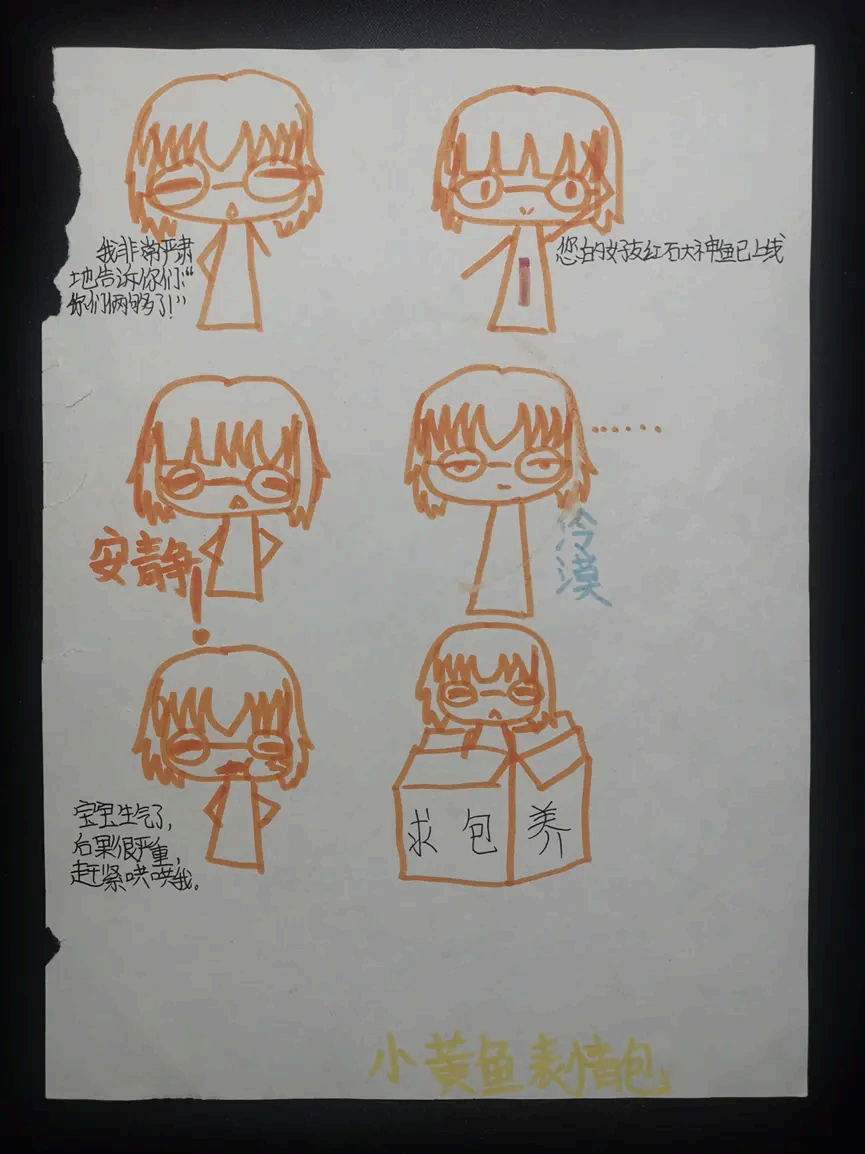 我非常严肃
地告诉你们:“
你们俩够了!”
您的好友红石大神鱼已上线
安静!
......
冷漠
宝宝生气了,
后果很严重,
赶紧哄哄我。
求包养
小黄鱼表情包